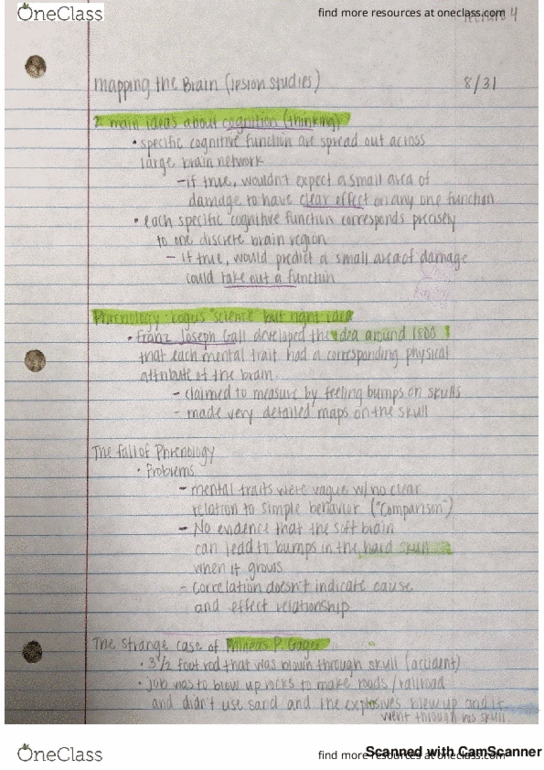 OneClass
find more resources at oneclass.com
lecture 4
mapping the Brain (lesion studies) 8/31
2 main ideas about cognition (thinking)
• specific cognitive function are spread out across
large brain network
- if true, wouldn't expect a small area of
damage to have clear effect on any one function
• each specific cognitive function corresponds precisely
to one discrete brain region
- if true, would predict a small area of damage
could take out a function
Phrenology: bogus "science" but right idea
• Franz Joseph Gall developed the idea around 1800
that each mental trait had a corresponding physical
attribute of the brain
- claimed to measure by feeling bumps on skulls
- made very detailed maps on the skull
The fall of Phrenology
• Problems
- mental traits were vague w/ no clear
relation to simple behavior ("Comparison")
- No evidence that the soft brain
can lead to bumps in the hard skull
when it grows
- correlation doesn't indicate cause
and effect relationship
The strange case of Phineas P. Gage
• 3 1/2 foot rod that was blown through skull (accident)
• job was to blow up rocks to make roads/railroad
and didn't use sand and the explosives blew up and it
went through his skull.
OneClass
find more resources at oneclass.com
Scanned with CamScanner